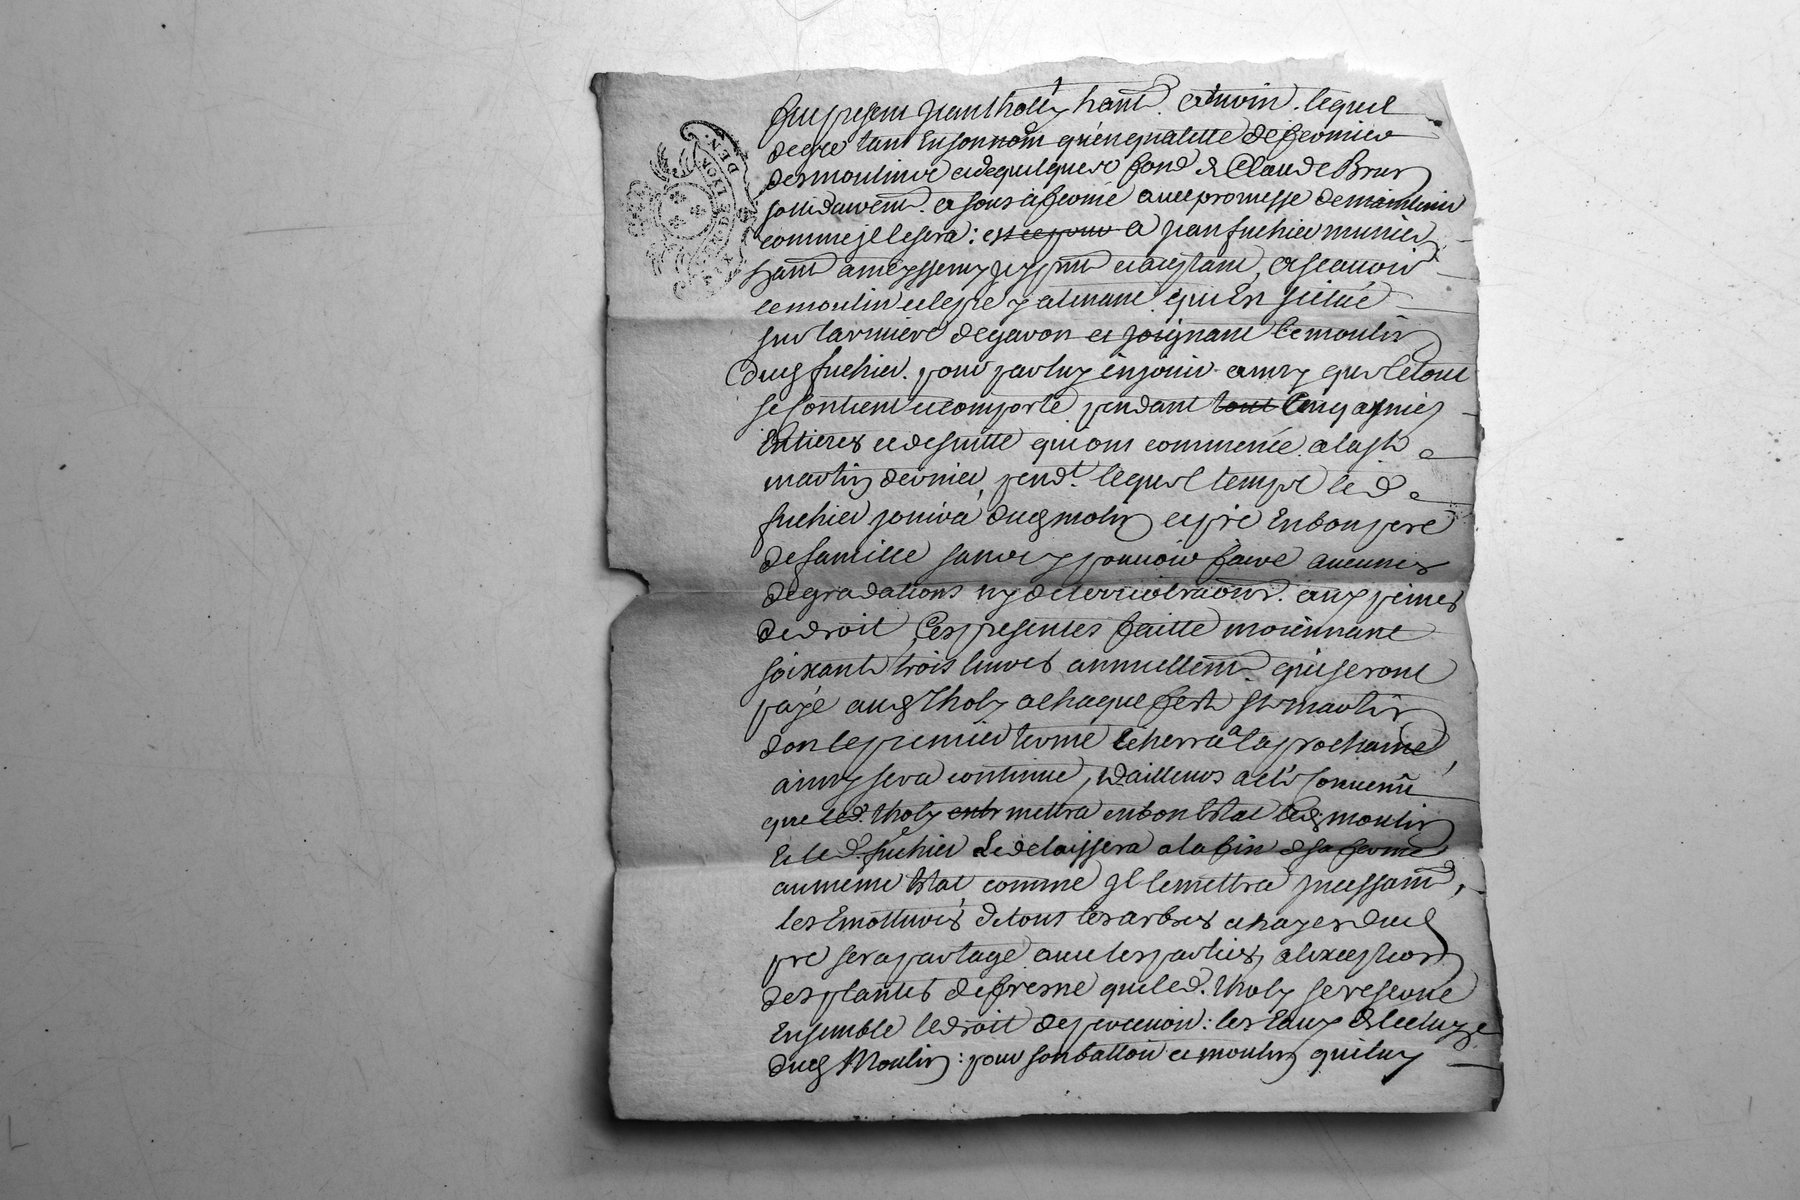 GEN. DE LYON
fut present Jean tholy hant. lequel
de gre tant en son nom qu'en qualitté de fermier
des moulins et de quelques fond de Claude Brun
sollidairemt. a sous afermé avec promesse de maintenir
comme jl le sera: est ce pour a Jean fuchier munier
hant a meyssemy jcy pnt et aceptant, a scavoir
le moulin et le pre y atenant qui est scitué
sur la riviere de gavon et joignant le moulin
dud fuchier. pour par luy en jouir ainsy que le tout
se contient et comporte pendant tout cinq anneés
entieres et de suitte qui ont commencé a la st
martin dernier, pendt. lequel temps led
fuchier jouira dud molin et pré en bon pere
de famille sans y pouvoir faire aucunes
degradations ny deteriorations. aux peines
de droit, ces presentes faitte moiennant
soixante trois livres annuellemt. qui seront
payé aud tholy a chaque feste st martin
don le premier terme echerra a la prochaine,
ainsy sera continué, d'ailleurs a eté convenu
que led. tholy mettra en bon estat led. moulin
et led. fuchier le delaissera a la fin de sa ferme
au meme estat comme jl le mettra jncessamt,
les Emottures de tous les arbres et hayes dud
pre sera partagé avec les parties, a l'exception
des plantes de fresne que led. tholy se reserve
Ensemble le droit de : les Eaux de l'ecluze
dud Moulin: pour son battoir et moulin qui luy